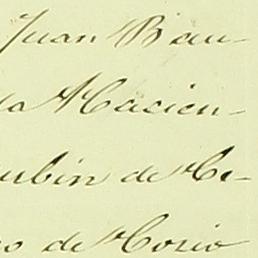 Juan Bau-
la Hacien-
ubin de Ce-
o de Cosio